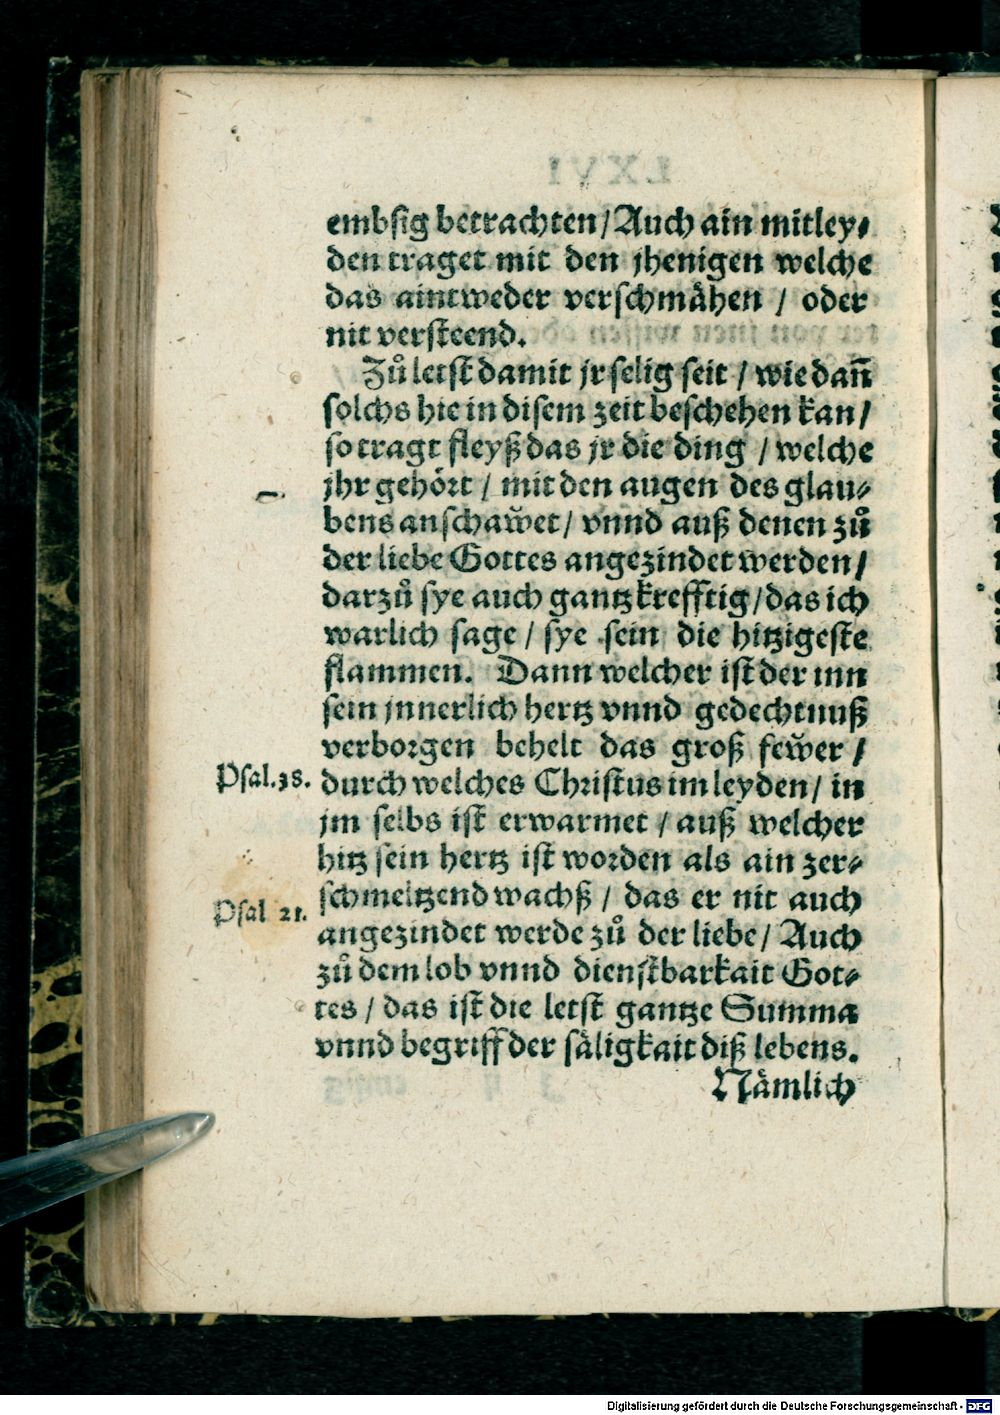 embsig betrachten / Auch ain mitley⸗
den traget mit den jhenigen welche
das aintweder verschmåhen / oder
nit versteend.
Zů letst damit jr selig seit / wie dañ
solchs hie in disem zeit beschehen kan /
so tragt fleyß das jr die ding / welche
jhr gehört / mit den augen des glau⸗
bens anschaw̌et / vnnd auß denen zů
der liebe Gottes angezindet werden /
darzů sye auch gantz krefftig / das ich
warlich sage / sye sein die hitzigeste
flammen. Dann welcher ist der inn
sein jnnerlich hertz vnnd gedechtnuß
verborgen behelt das groß few̌er /
Psal.38. durch welches Christus im leyden / in
jm selbs ist erwarmet / auß welcher
hitz sein hertz ist worden als ain zer⸗
schmeltzend wachß / das er nit auch
Psal 21. angezindet werde zů der liebe / Auch
zů dem lob vnnd dienstbarkait Got⸗
tes / das ist die letst gantze Summa
vnnd begriff der såligkait diß lebens.
Nåmlich
Digitalisierung gefördert durch die Deutsche Forschungsgemeinschaft - DFG